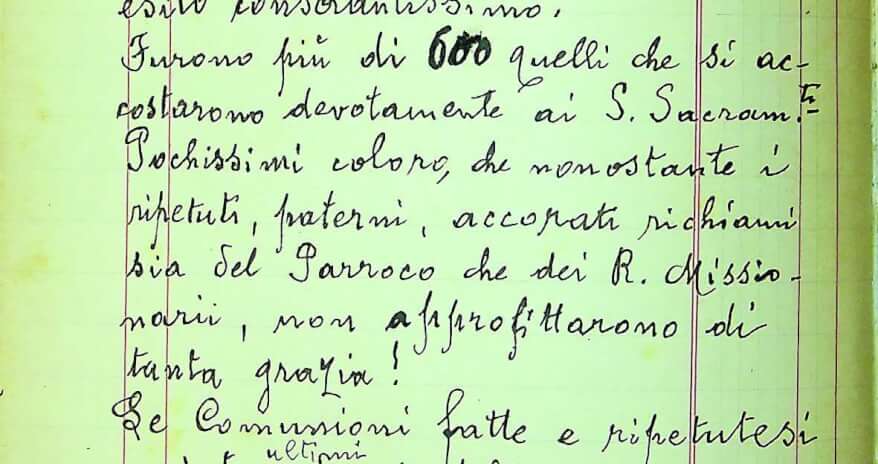 esito consolantissimo.
Furono più di 600 quelli che si ac-
costarono devotamente ai S. Sacram.ti
Pochissimi coloro, che nonostante i
ripetuti, paterni, accorati richiami
sia del Parroco che dei R. Missio-
narii, non approfittarono di
tanta grazia!
Le Comunioni fatte e ripetutesi
ultimi